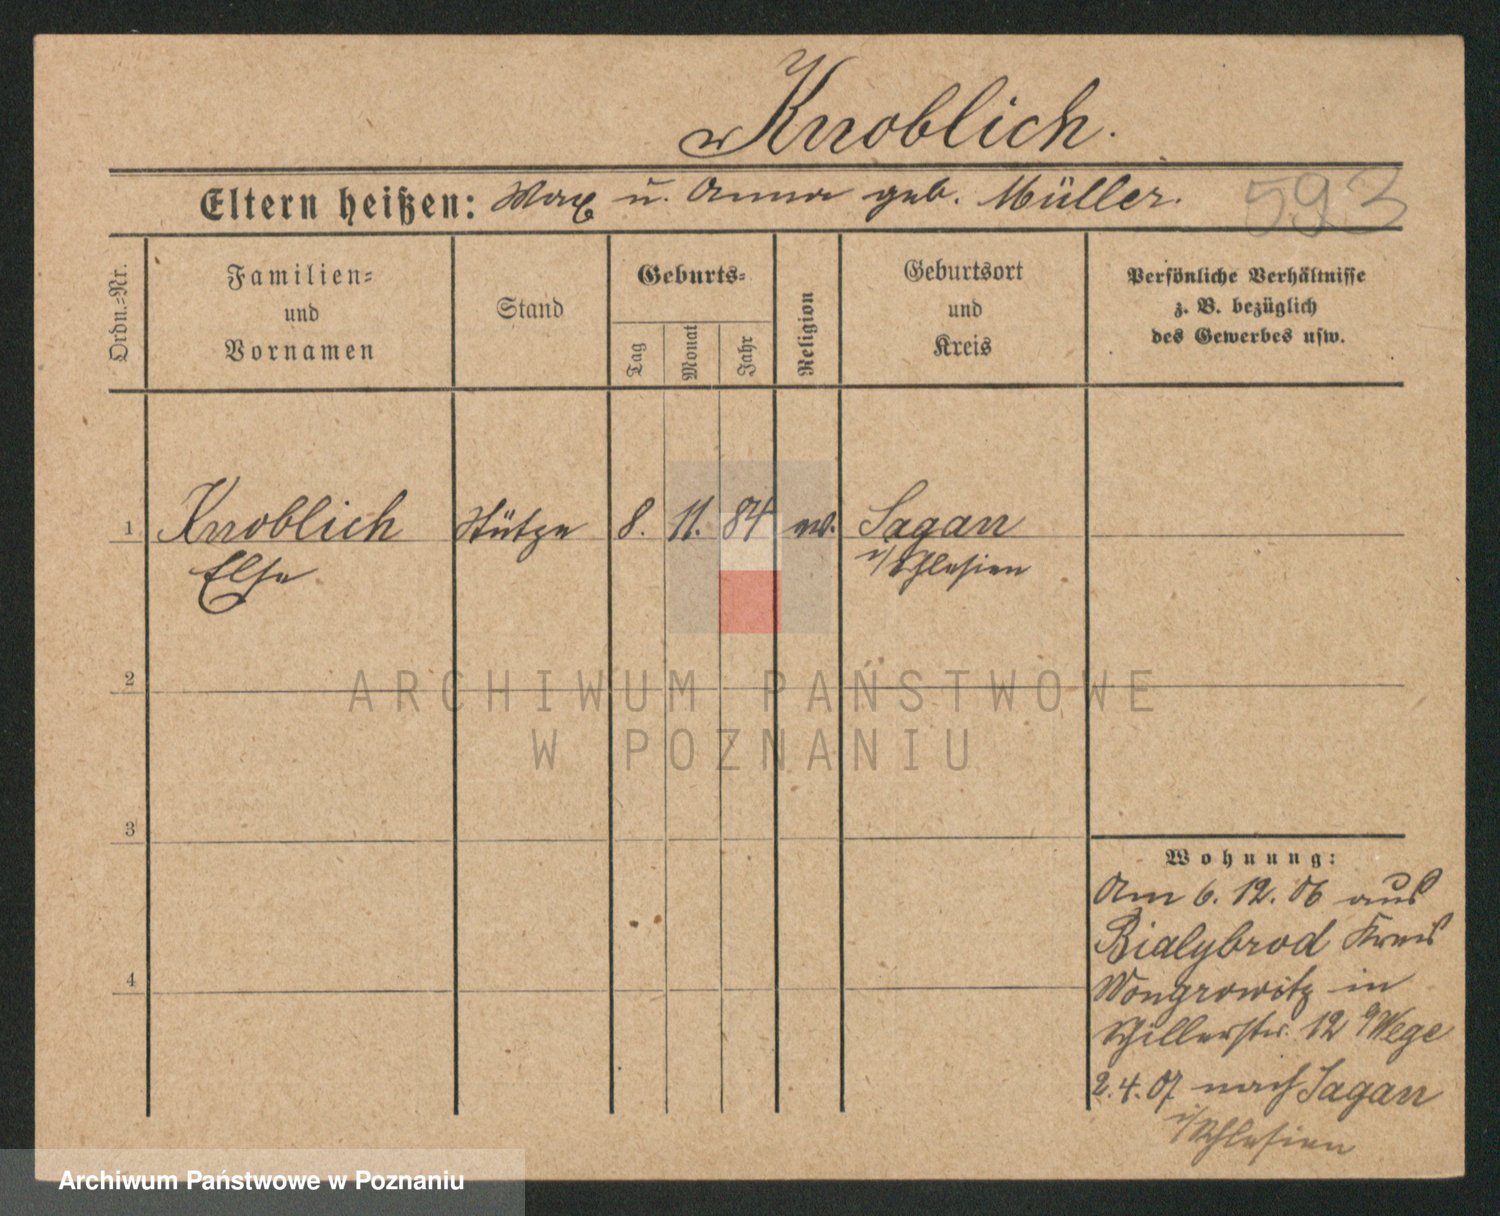 Knoblich.
Eltern heißen: Max u. Anna geb. Müller.
593
Ordn.=Nr.
Familien=
und
Vornamen
Stand
Geburts=
Tag
Monat
Jahr
Religion
Geburtsort
und
Kreis
Persönliche Verhältnisse
z. B. bezüglich
des Gewerbes usw.
1 Knoblich Stütze 8. 11. 84 ev. Sagan
Else i/Schlesien
2
3
4
Wohnung:
Am 6. 12. 06 aus
Bialybrod Kreis
Wongrowitz in
Schillerstr. 12 Wege
2. 4. 07 nach Sagan
i/Schlesien
ARCHIWUM PAŃSTWOWE
W POZNANIU
Archiwum Państwowe w Poznaniu